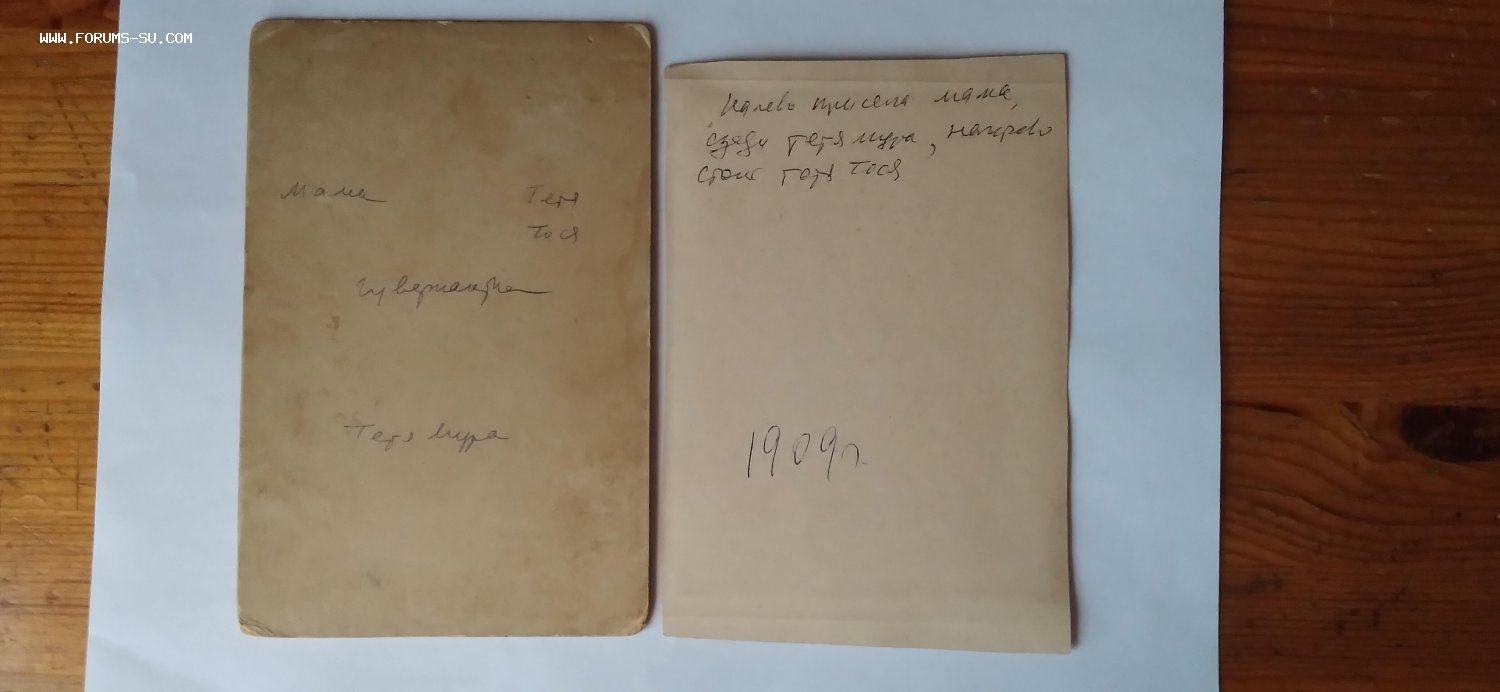 WWW.FORUMS-SU.COM
Мама
Тетя
Тося
Гувернантка
Тетя Мура
Налево присела мама,
сзади тетя Мура, направо
стоит тетя Тося
1909 г.